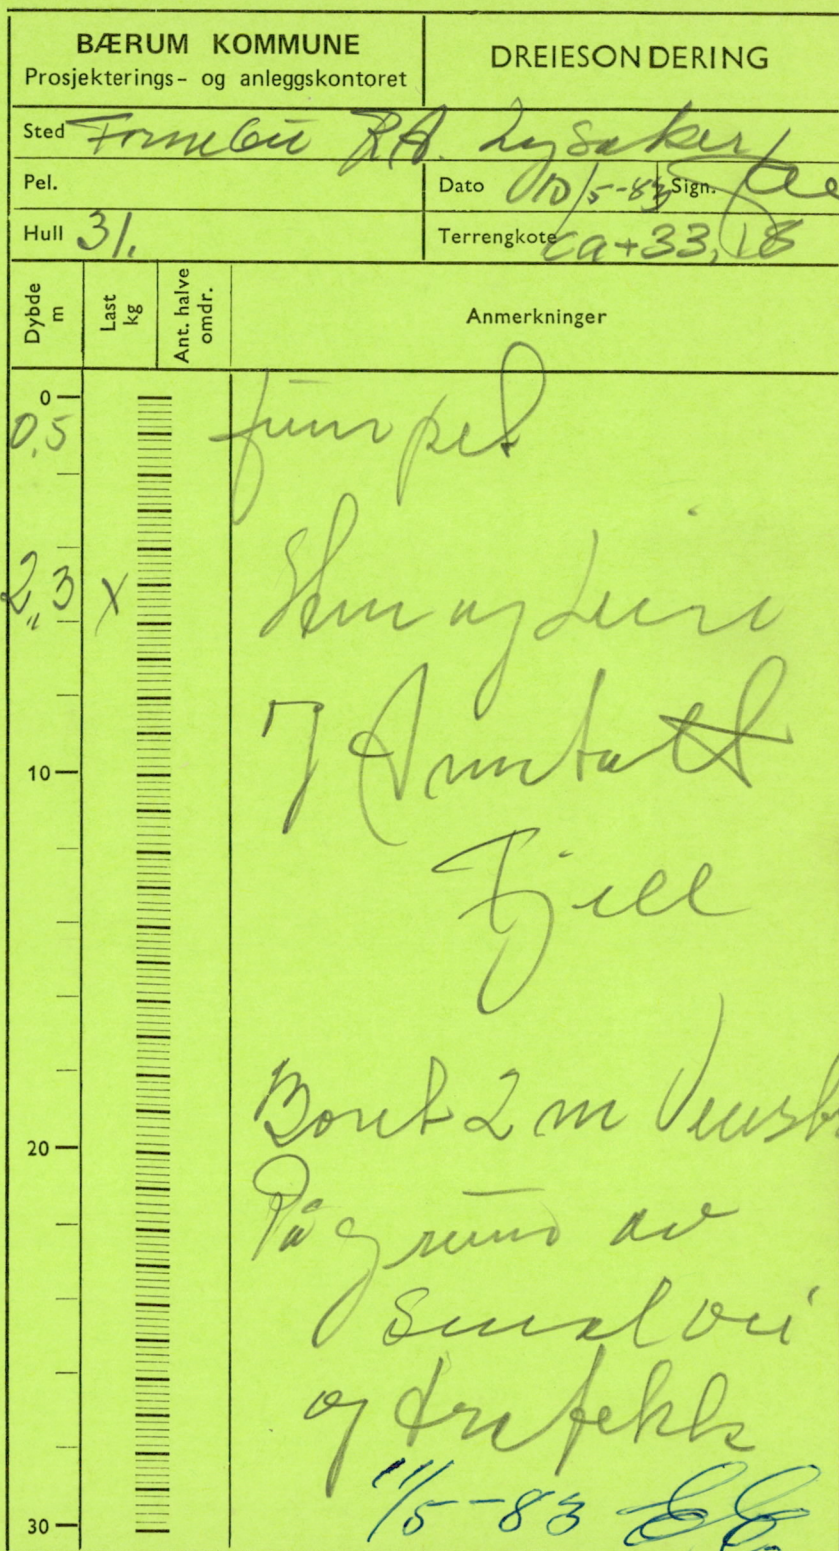 BÆRUM KOMMUNE
Prosjekterings- og anleggskontoret
DREIESONDERING
Sted Fornebu R.A. Lysaker
Pel.
Dato 10/5-83 Sign.
Hull 31.
Terrengkote ca +33,18
Dybde m
Last kg
Ant. halve omdr.
Anmerkninger
0
0,5
2,3 x
Sten og Leire
Antatt
10
Fjell
Boret 2 m Venstr
20
På grunn av
smal vei
og trafekk
11/5-83
30